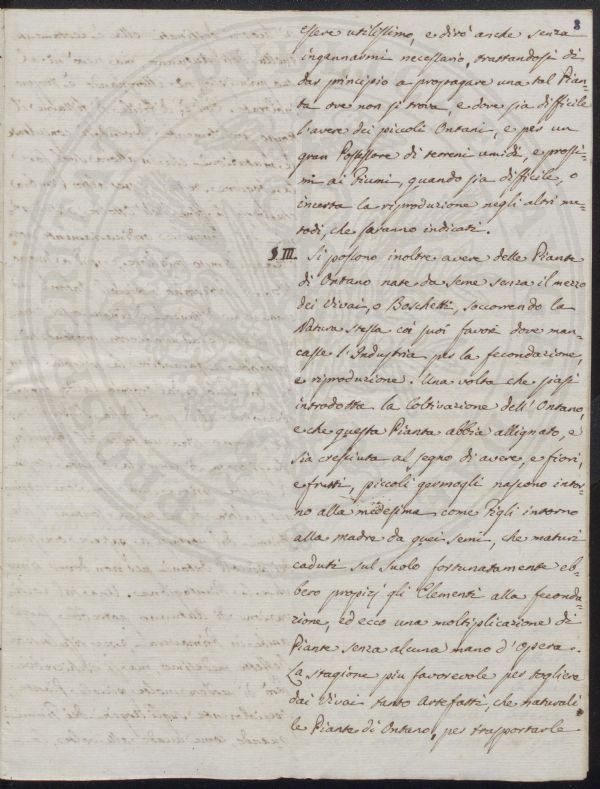 8
essere utilissimo, e dirò anche senza
ingannarmi necessario, trattandosi di
dar principio a propagare una tal Pian-
ta ove non si trova, e dove sia difficile
l'avere dei piccoli Ontani, e per un
gran Possessore di terreni umidi, e prossi-
mi ai Fiumi, quando sia difficile, o
incerta la riproduzione negli altri me-
todi, che saranno indicati.
§. III. Si possono inoltre avere delle Piante
di Ontano nate da seme senza il mezzo
dei Vivai, o Boschetti, soccorrendo la
Natura stessa coi suoi favori dove man-
casse l'Industria per la fecondazione,
e riproduzione. Una volta che siasi
introdotta la Coltivazione dell'Ontano,
e che questa Pianta abbia allignato, e
sia cresciuta al segno di avere, e fiori,
e frutti, piccoli germogli nascono intor-
no alla medesima come Figli intorno
alla madre da quei semi, che maturi
caduti sul suolo fortunatamente eb-
bero propizj gli Elementi alla feconda-
zione, ed ecco una moltiplicazione di
Piante senza alcuna mano d'Opera.
La stagione piu favorevole per togliere
dai Vivai tanto Artefatti, che naturali
le Piante di Ontano, per trapportarle